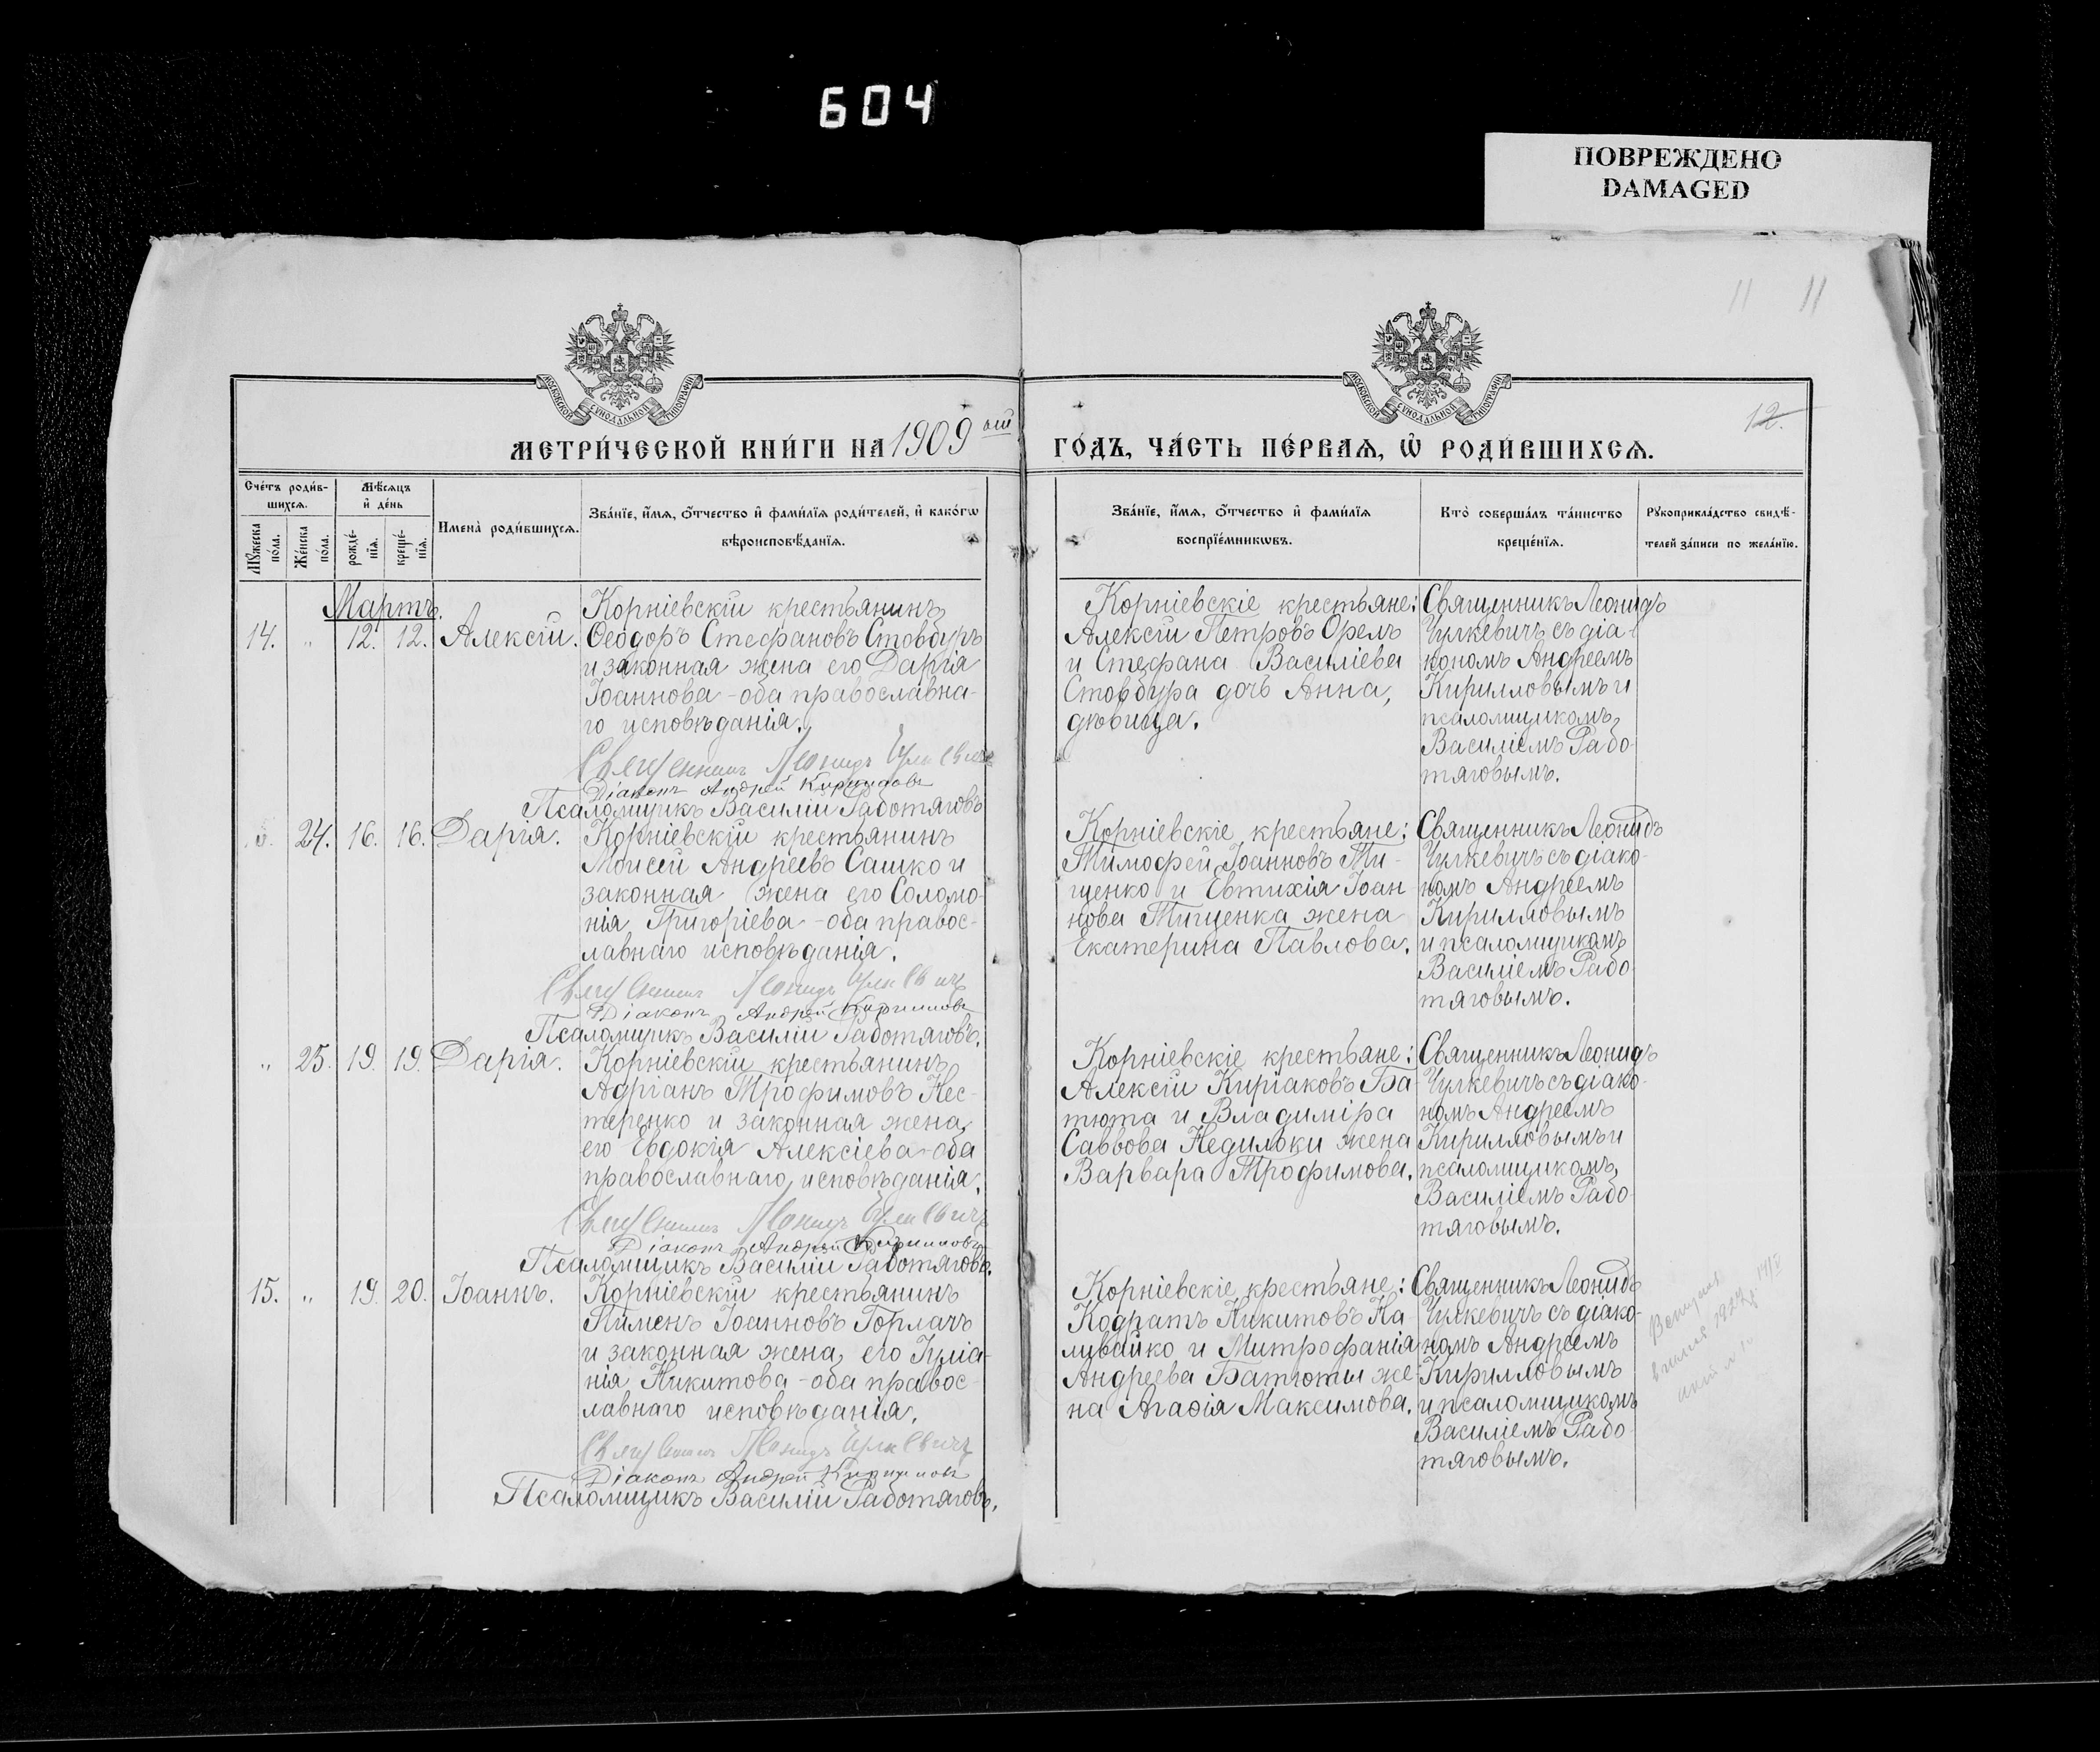 604
ПОВРЕЖДЕНО
DAMAGED
11 11
МОСКОВСКОЙ СѴНОДАЛЬНОЙ ТИПОГРАФІИ
МОСКОВСКОЙ СѴНОДАЛЬНОЙ ТИПОГРАФІИ
12.
МЕТРИ́ЧЕСКОЙ КНИ́ГИ НА 1909 ый
ГО́ДЪ, ЧА́СТЬ ПЕ́РВАѦ, Ѽ РОДИ́ВШИХСѦ.
Сче́тъ роди́в-
шихсѧ.
Мѣ́сѧцъ
и҆ де́нь
Мꙋ́жеска
по́ла.
Же́нска
по́ла.
рожде́-
нїѧ.
креще́-
нїѧ.
Имена̀ роди́вшихсѧ.
Зва́нїе, и҆́мѧ, ѻ҆́тчество и҆ фами́лїѧ роди́телей, и҆ како́гѡ
вѣроисповѣ́данїѧ.
Зва́нїе, и҆́мѧ, ѻ҆́тчество и҆ фами́лїѧ
воспрїе́мникѡвъ.
Кто̀ соверша́лъ та́инство
креще́нїѧ.
Рꙋкоприкла́дство свидѣ́-
телей за́писи по жела́нїю.
Мартъ.
14. „ 12. 12. Алексій.
Корніевскій крестьянинъ
Ѳеодоръ Стефановъ Стовбуръ
и законная жена его Дарія
Іоаннова - оба православна-
го исповѣданія.
Священникъ Леонидъ Чулкевичъ
Діаконъ Андрей Кирилловъ
Псаломщикъ Василій Работяговъ
Корніевскіе крестьяне:
Алексій Петровъ Орелъ
и Стефана Василіева
Стовбура дочь Анна,
дѣвица.
Священникъ Леонидъ
Чулкевичъ съ діа-
кономъ Андреемъ
Кирилловымъ и
псаломщикомъ
Василіемъ Рабо-
тяговымъ.
24. 16. 16. Дарія.
Корніевскій крестьянинъ
Моисей Андреевъ Сашко и
законная жена его Соломо-
нія Григоріева - оба правос-
лавнаго исповѣданія.
Священникъ Леонидъ Чулкевичъ
Діаконъ Андрей Кирилловъ
Псаломщикъ Василій Работяговъ.
Корніевскіе крестьяне:
Тимофей Іоанновъ Ти-
щенко и Евтихія Іоан
нова Тищенка жена
Екатерина Павлова.
Священникъ Леонидъ
Чулкевичъ съ діако-
номъ Андреемъ
Кирилловымъ
и псаломщикомъ
Василіемъ Рабо-
тяговымъ.
„ 25. 19. 19. Дарія.
Корніевскій крестьянинъ
Адріанъ Трофимовъ Нес-
теренко и законная жена
его Евдокія Алексіева - оба
православнаго исповѣданія.
Священникъ Леонидъ Чулкевичъ
Діаконъ Андрей Кирилловъ
Псаломщикъ Василій Работяговъ.
Корніевскіе крестьяне:
Алексій Киріаковъ Ба-
тюта и Владиміра
Саввова Недилоки жена
Варвара Трофимова.
Священникъ Леонидъ
Чулкевичъ съ діако-
номъ Андреемъ
Кирилловымъ и
псаломщикомъ
Василіемъ Рабо-
тяговымъ.
15. „ 19. 20. Іоаннъ.
Корніевскій крестьянинъ
Пименъ Іоанновъ Горлачъ
и законная жена его Іуліа-
нія Никитова - оба правос-
лавнаго исповѣданія.
Священникъ Леонидъ Чулкевичъ
Діаконъ Андрей Кирилловъ
Псаломщикъ Василій Работяговъ.
Корніевскіе крестьяне:
Кодратъ Никитовъ На
ливайко и Митрофанія
Андреева Батюты же
на Агаѳія Максимова.
Священникъ Леонидъ
Чулкевичъ съ діако-
номъ Андреемъ
Кирилловымъ
и псаломщикомъ
Василіемъ Рабо
тяговымъ.
1927